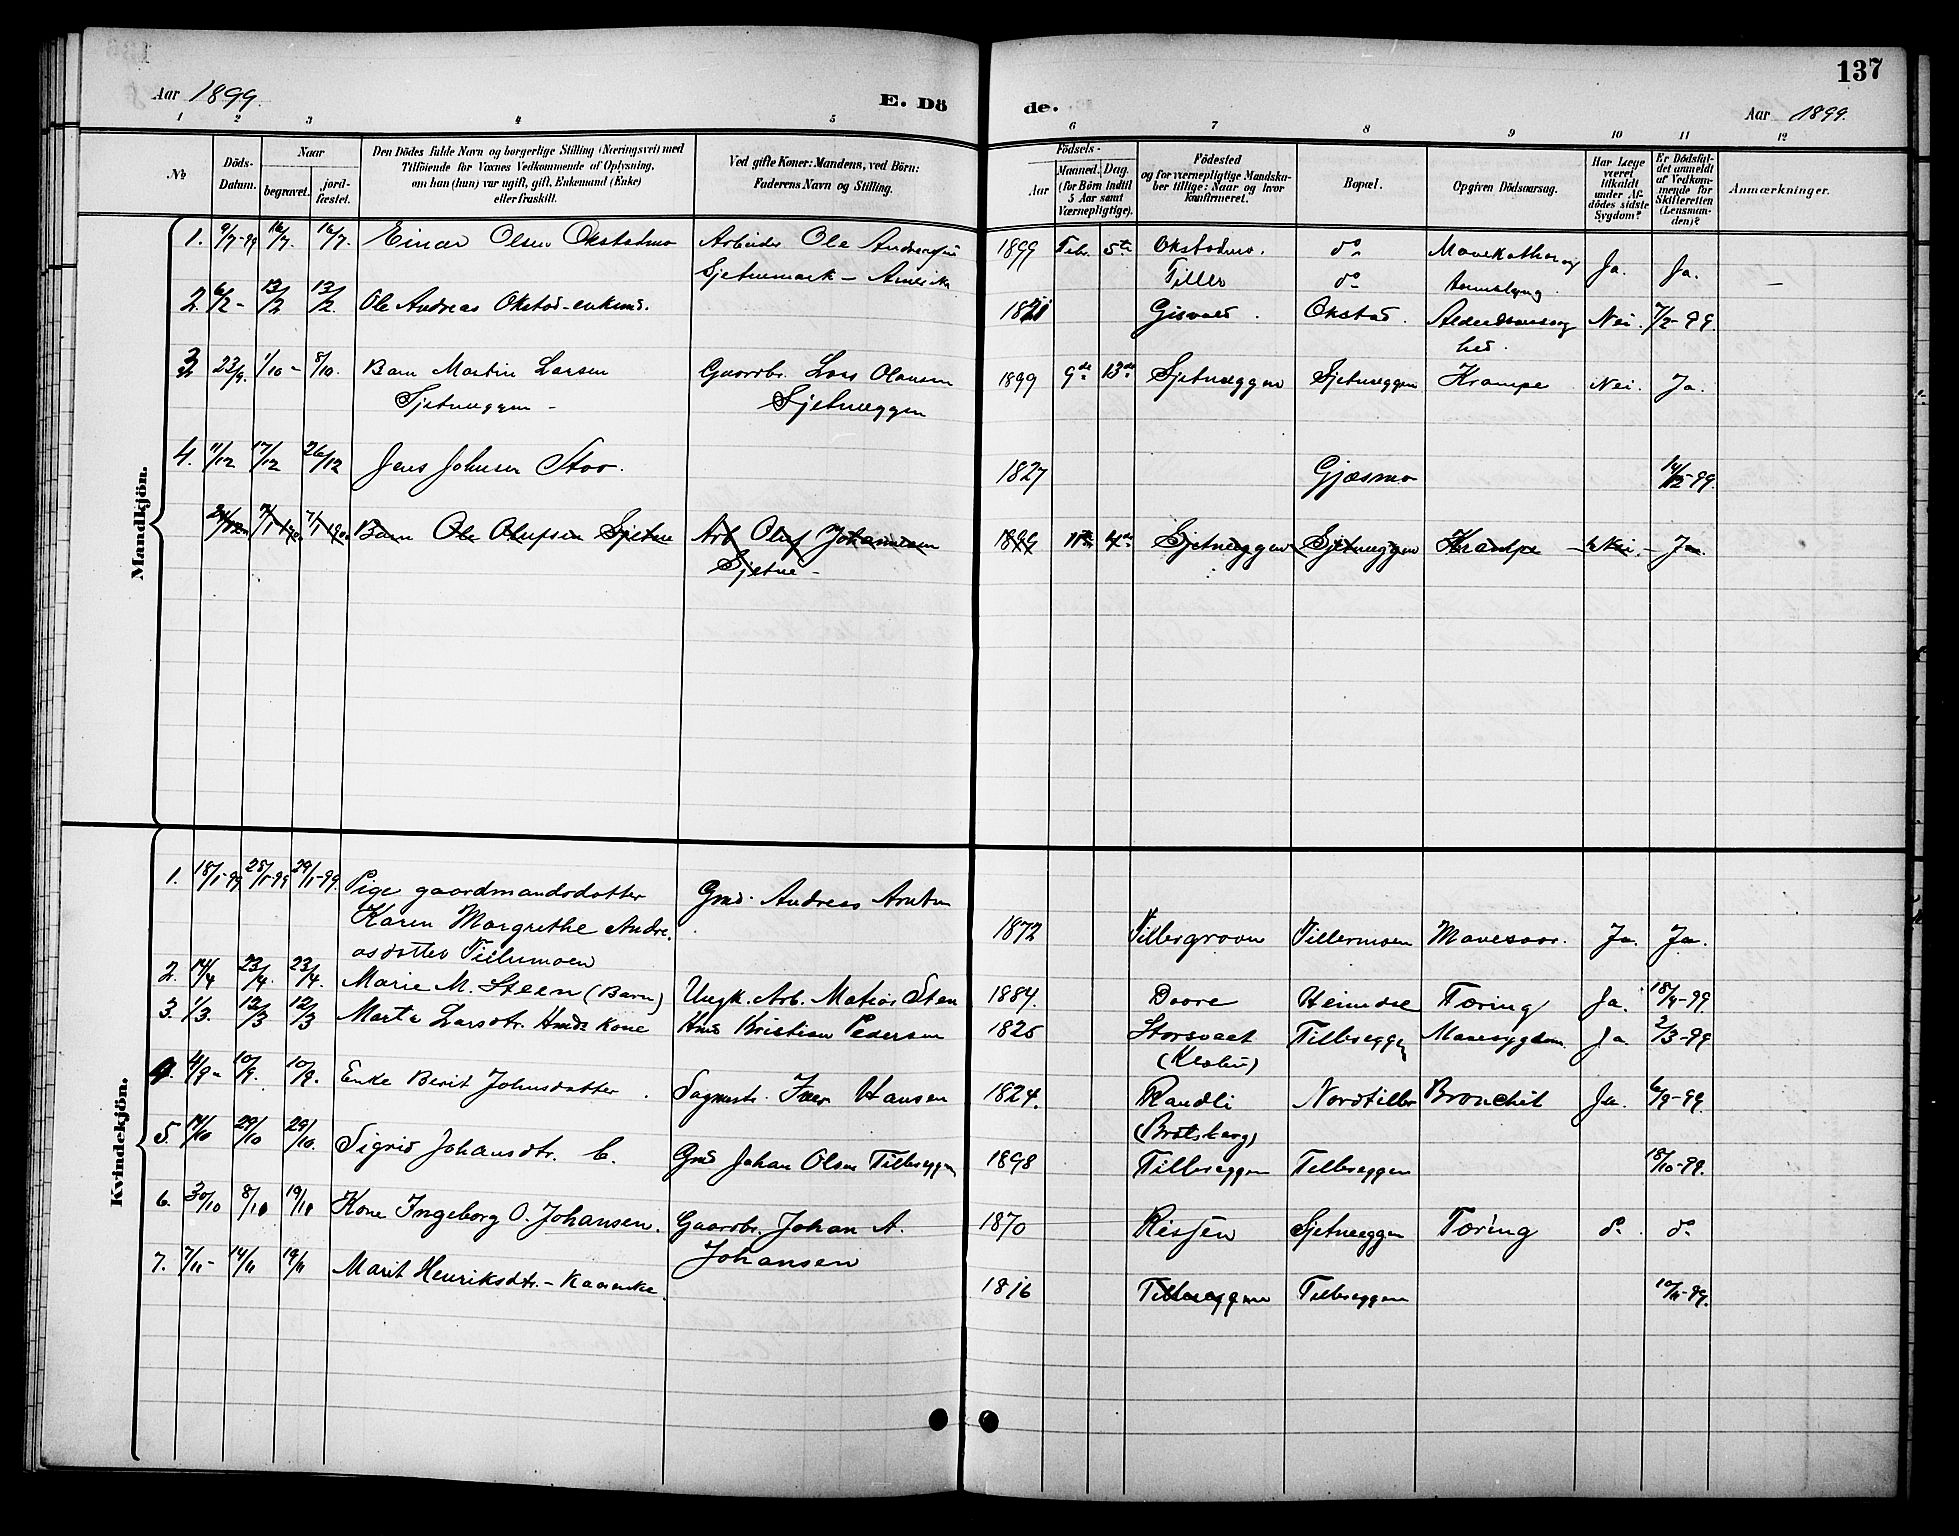 137
Aar 1899.
E. Dö
de.
Aar 1899.
1 2 3 4 5 6 7 8 9 10 11 12
No
Döds-
Datum.
Naar
begravet.
jord-
fæstet.
Den Dödes fulde Navn og borgerlige Stilling (Næringsvei) med
Tilföiende for Voxnes Vedkommende af Oplysning,
om han (hun) var ugift, gift, Enkemand (Enke)
eller fraskilt.
Ved gifte Koner: Mandens, ved Börn:
Faderens Navn og Stilling.
Födsels-
Aar
Maaned. Dag.
(for Börn indtil
5 Aar samt
Værnepligtige).
Födested
og for værnepligtige Mandska-
ber tillige: Naar og hvor
konfirmeret.
Bopæl.
Opgiven Dödsaarsag.
Har Læge
været
tilkaldt
under Af-
dödes sidste
Sygdom?
Er Dödsfal-
det anmeldt
af Vedkom-
mende for
Skifteretten
(Lensman-
den)?
Anmærkninger.
Mandkjön.
1. 9/7-99 16/7. 16/7. Einar Olsen Okstadmo Arbeider Ole 1899 Febr. 5te Okstadmo. do Ja. Ja.
Sjetnemark - Amerika Tiller do
2. 6/2- 13/2 13/2. Ole Andreas Okstad - enkemd. 1821 Okstad. Nei. 7/2-99.
hed.
3. 23/9. 1/10- 8/10. Barn Martin Larsen Gaardbr. Lars Olausen 1899 9de 13de Sjetneeggen Sjetneeggen Krampe Nei. Ja.
Sjetneeggen - Sjetneeggen
4. 11/12 17/12 26/12 Jens Johnsen Stor. 1827 Gjæsmo 14/12-99.
Barn Ole Olufsen Sjetne Arb Oluf Johannesen 1899 11te 4de Sjetneeggen Sjetneeggen Krampe - Nei. - Ja.
Sjetne -
Kvindekjön.
1. 18/1-99 25/1-99 29/1-99. Pige gaardmandsdatter Gmd. Andreas
Karen Margrethe Andre- 1872 Tillergroven Tillermoen Mavesaar. Ja. Ja.
asdatter Tillermoen
2. 14/4 23/4. 23/4. Marie M. Steen (Barn) Ungk. Arb. Matias Sten 1884. Heimdal Tæring Ja. 18/4-99.
3. 1/3. 12/3 12/3 Marta Larsdtr. Hmds kone Hmd Kristian Pedersen 1825 Tillereggen Mavesygdom. Ja 2/3-99
(Klæbu)
4. 4/9- 10/9. 10/9. Enke Berit Johnsdatter. Iver Hansen 1824. Randli Nordtiller Bronchit Ja. 6/9-99.
(Bratsberg)
5. 14/10 29/10 29/10. Sigrid Johansdtr. Gmd Johan Olsen Tillereggen 1898 Tillereggen Tillereggen 18/10-99.
6. 30/10 8/10 19/11 Kone Ingeborg O. Johansen. Gaardbr. Johan A. 1870 Rissen Sjetneeggen Tæring do. do
Johansen
7. 7/11- 14/11 19/11 Marit Henriksdtr. - Kaarenke. 1816 Tillereggen Tillereggen 10/11-99.